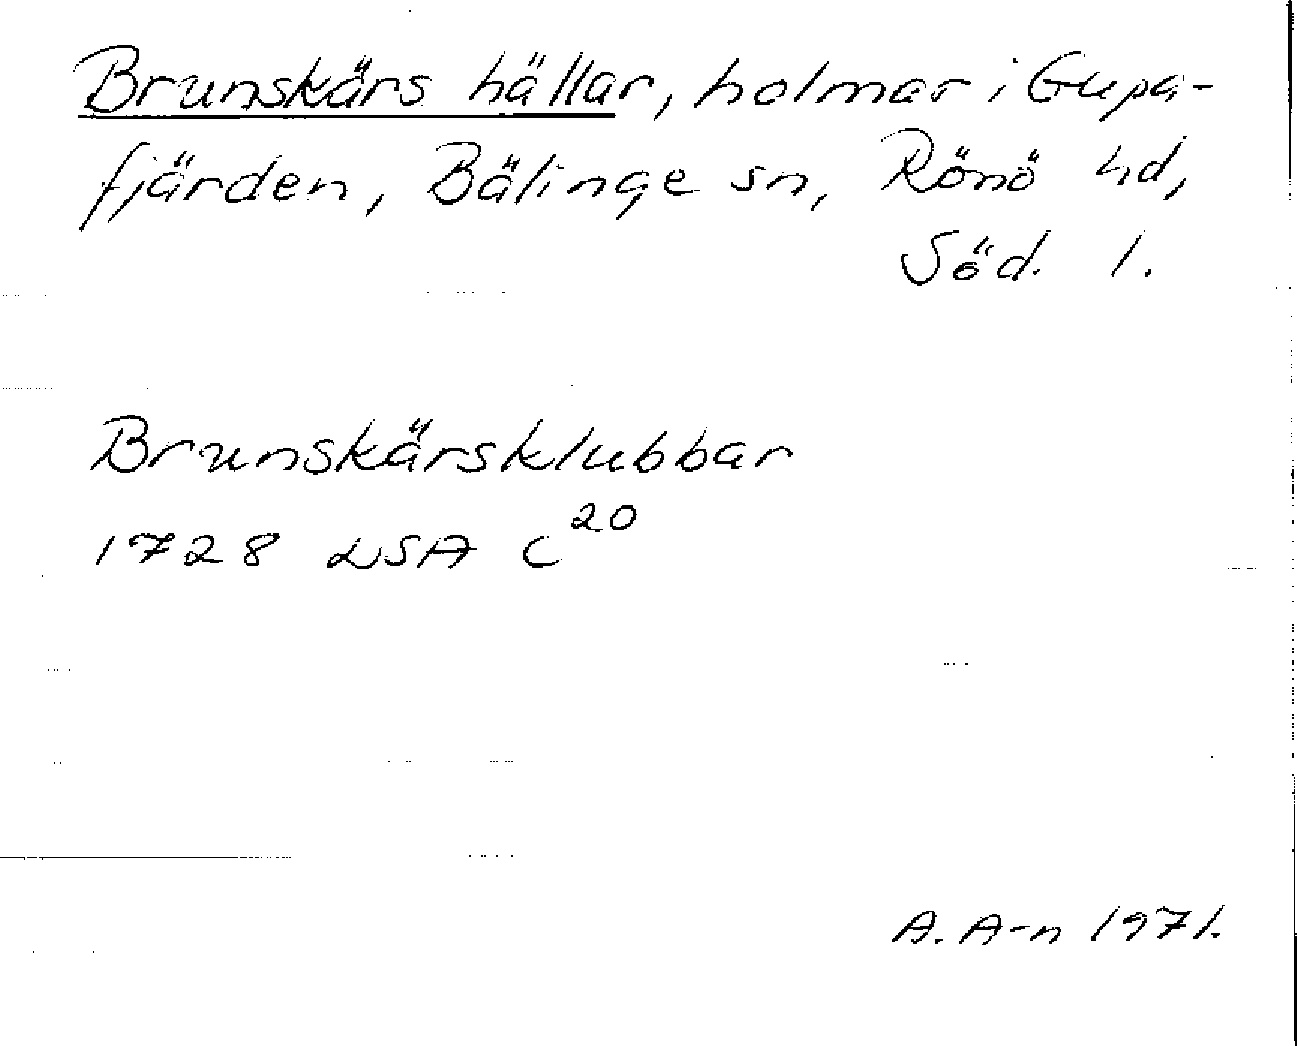 Brunskärs hällar, holmar i Gupa-
fjärden, Bälinge sn, Rönö hd,
Söd. l.
Brunskärsklubbar
1728 LSA C²⁰
A. A-n 1971.